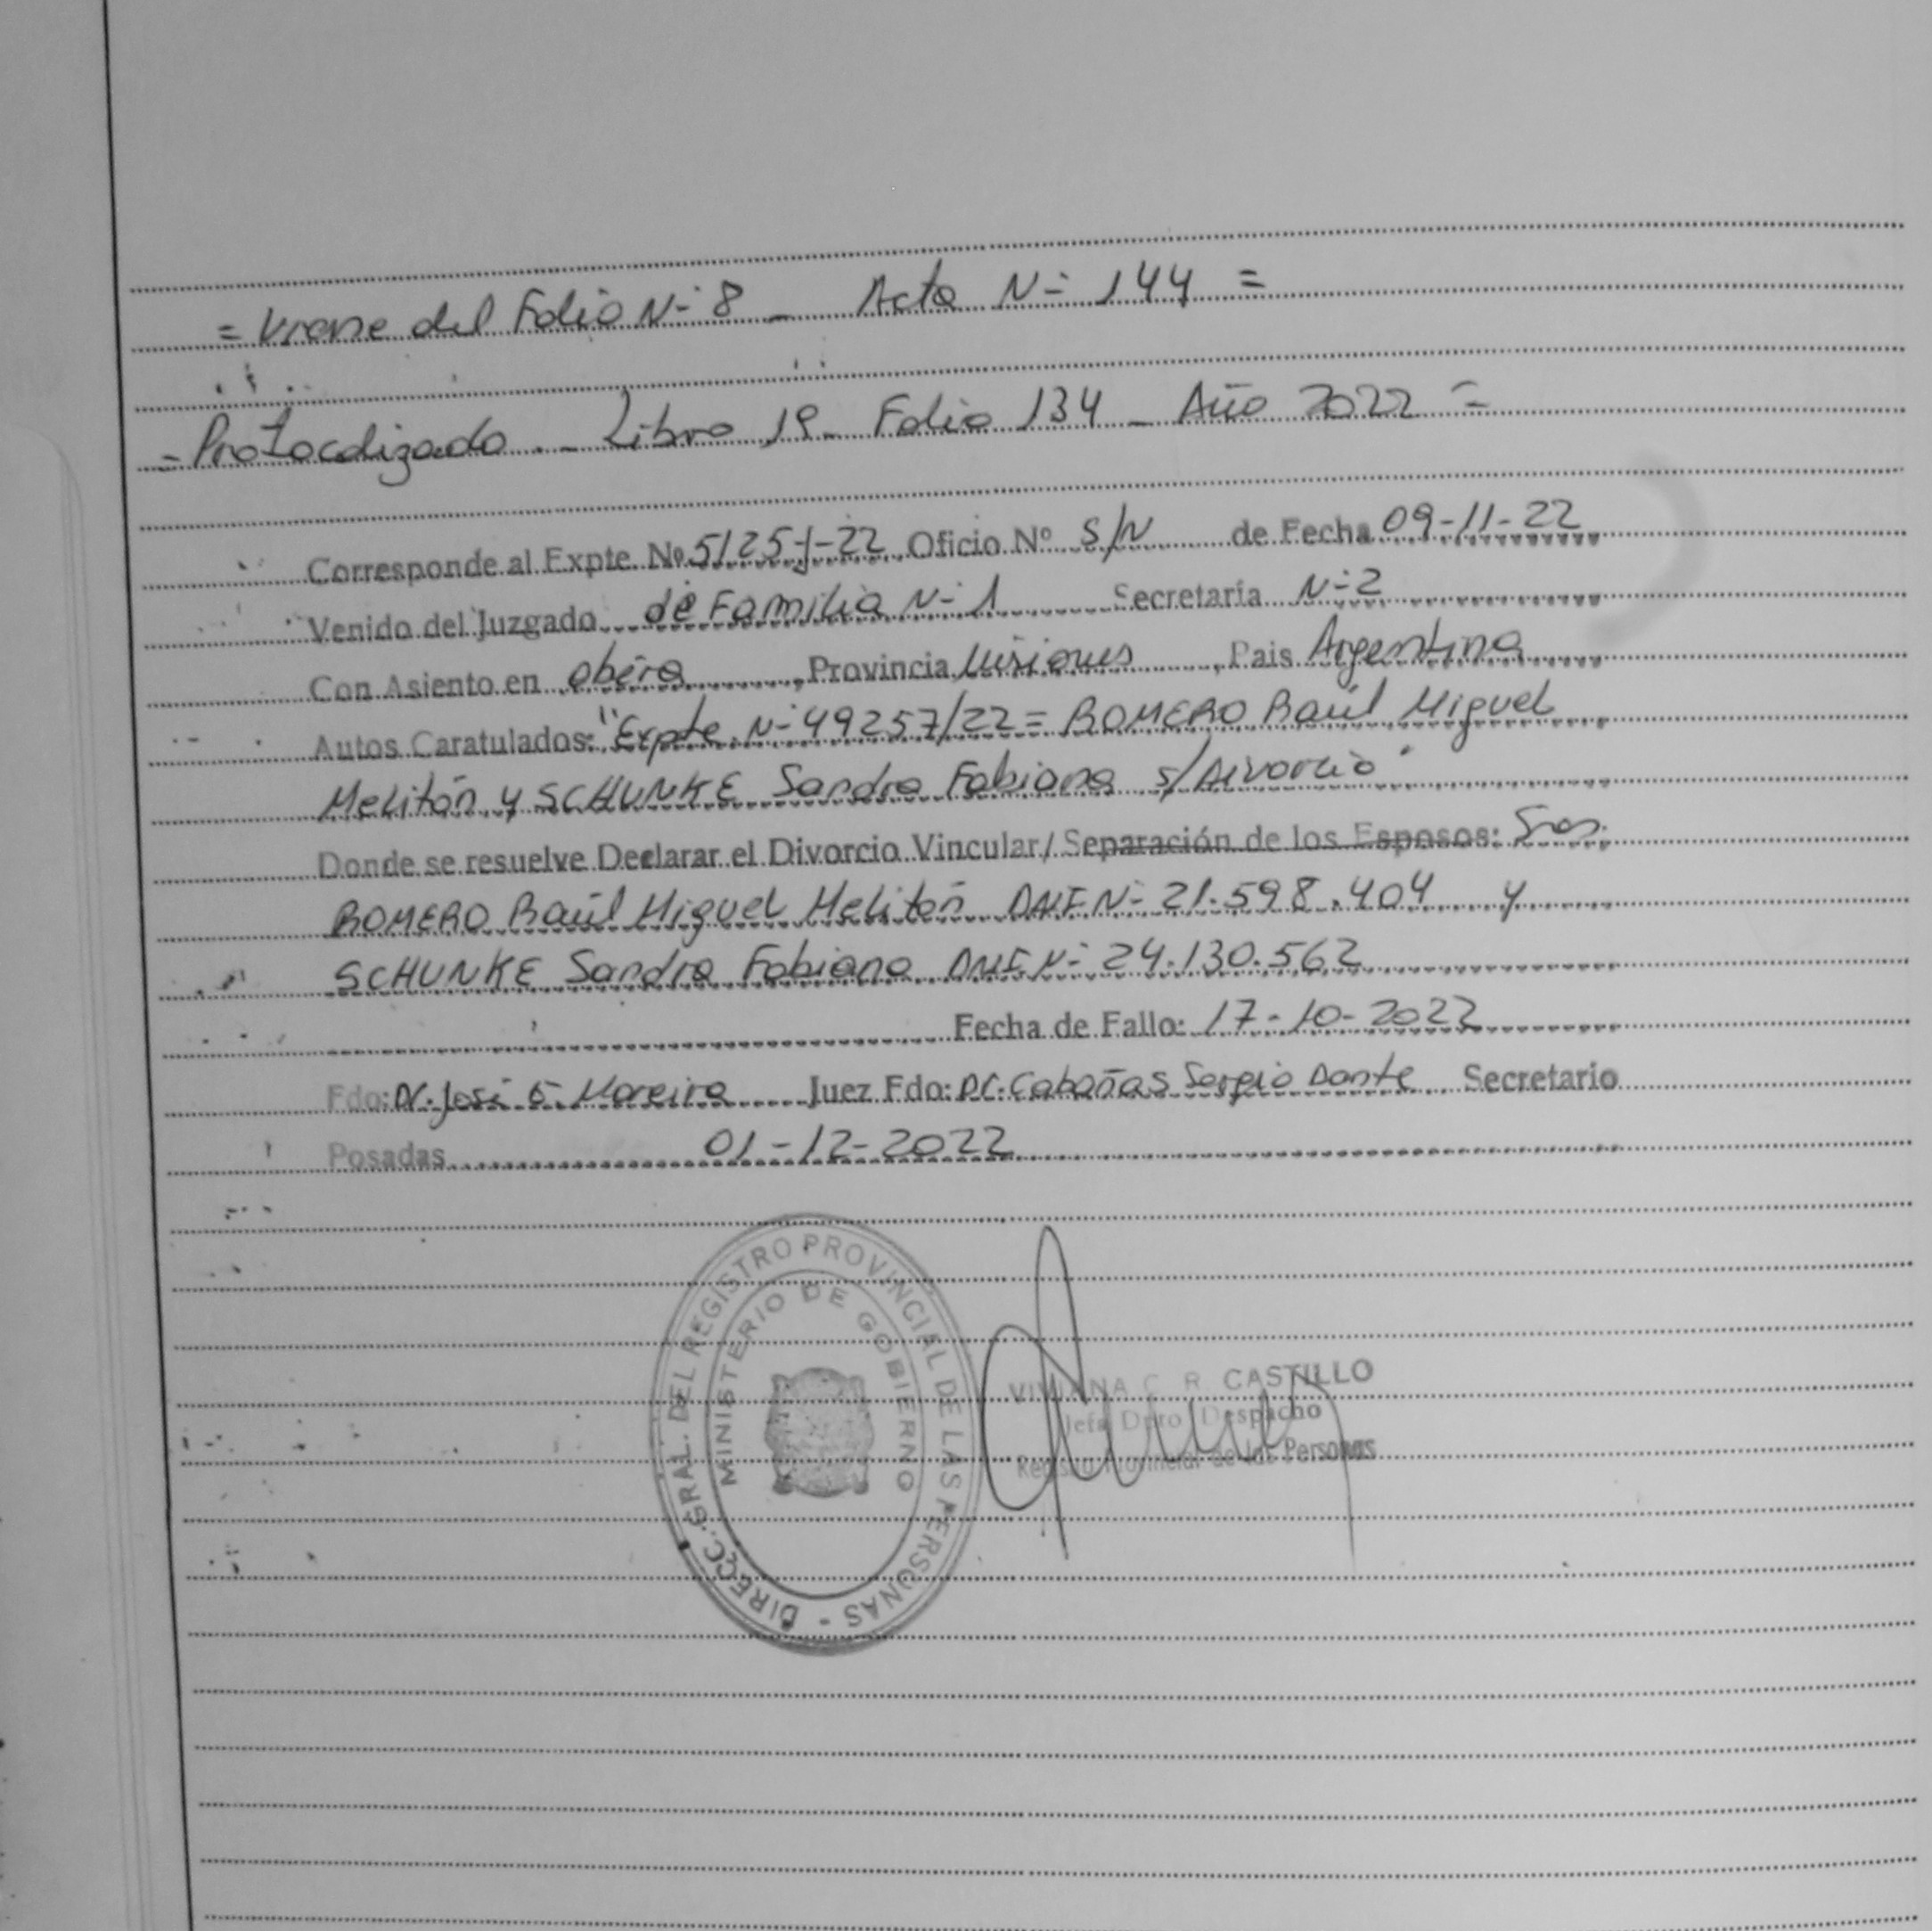 = Viene del Folio N- 8 - Acta N- 144 =
- Protocolizado. - Libro 1º - Folio 134 - Año 2022 =
Corresponde al Expte. Nº 5125-J-22 Oficio Nº S/N de Fecha 09-11-22
Venido del Juzgado de Familia N- 1 Secretaría N- 2
Con Asiento en Oberá, Provincia Misiones, Pais Argentina
Autos Caratulados: "Expte. N- 49257/22 = ROMERO Raúl Miguel
Melitón y SCHUNKE Sandra Fabiana s/Divorcio"
Donde se resuelve Declarar el Divorcio Vincular/ Separación de los Esposos: Sres.
ROMERO Raúl Miguel Melitón DNI N- 21.598.404 y
SCHUNKE Sandra Fabiana DNI N- 24.130.562
Fecha de Fallo: 17-10-2022
Fdo: Dr. José G. Moreira Juez Fdo: Dr. Cabañas Sergio Dante Secretario
Posadas 01-12-2022
DIRECC. GRAL. DEL REGISTRO PROVINCIAL DE LAS PERSONAS -
MINISTERIO DE GOBIERNO
VIVIANA C. R. CASTILLO
Jefa Dpto Despacho
Registro Provincial de las Personas